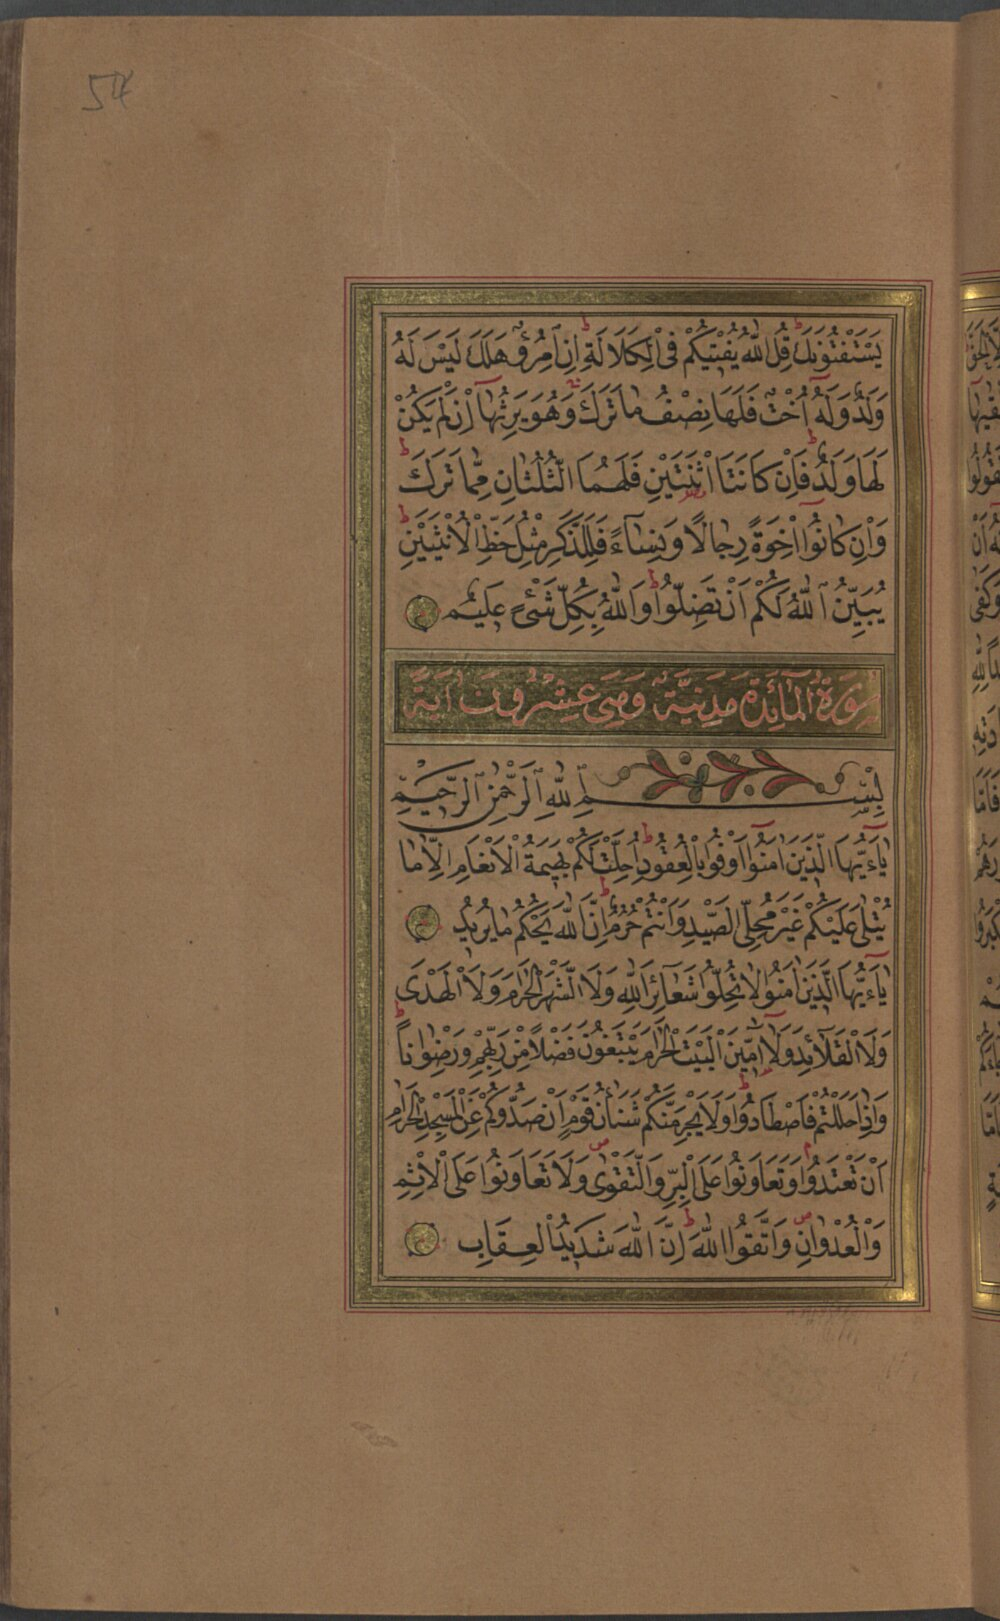 54
يَسْتَفْتُونَكَ قُلِ اللّٰهُ يُفْتِيكُمْ فِى الْكَلَالَةِ اِنِ امْرُؤٌ هَلَكَ لَيْسَ لَهُ
وَلَدٌ وَلَهُٓ اُخْتٌ فَلَهَا نِصْفُ مَا تَرَكَ وَهُوَ يَرِثُهَٓا اِنْ لَمْ يَكُنْ
لَهَا وَلَدٌ فَاِنْ كَانَتَا اثْنَتَيْنِ فَلَهُمَا الثُّلُثَانِ مِمَّا تَرَكَ
وَاِنْ كَانُٓوا اِخْوَةً رِجَالًا وَنِسَٓاءً فَلِلذَّكَرِ مِثْلُ حَظِّ الْاُنْثَيَيْنِ
يُبَيِّنُ اللّٰهُ لَكُمْ اَنْ تَضِلُّوا وَاللّٰهُ بِكُلِّ شَىْءٍ عَلِيمٌ
سُورَةُ الْمَآئِدَةِ مَدَنِيَّةٌ وَهِىَ عِشْرُونَ اٰيَةً
بِسْمِ اللّٰهِ الرَّحْمٰنِ الرَّحِيمِ
يَٓاءَيُّهَا الَّذِينَ اٰمَنُٓوا اَوْفُوا بِالْعُقُودِ اُحِلَّتْ لَكُمْ بَهِيمَةُ الْاَنْعَامِ اِلَّا مَا
يُتْلٰى عَلَيْكُمْ غَيْرَ مُحِلِّى الصَّيْدِ وَاَنْتُمْ حُرُمٌ اِنَّ اللّٰهَ يَحْكُمُ مَا يُرِيدُ
يَٓاءَيُّهَا الَّذِينَ اٰمَنُوا لَا تُحِلُّوا شَعَٓائِرَ اللّٰهِ وَلَا الشَّهْرَ الْحَرَامَ وَلَا الْهَدْىَ
وَلَا الْقَلَٓائِدَ وَلَٓا اٰمِّينَ الْبَيْتَ الْحَرَامَ يَبْتَغُونَ فَضْلًا مِنْ رَبِّهِمْ وَرِضْوَانًا
وَاِذَا حَلَلْتُمْ فَاصْطَادُوا وَلَا يَجْرِمَنَّكُمْ شَنَاٰنُ قَوْمٍ اَنْ صَدُّوكُمْ عَنِ الْمَسْجِدِ الْحَرَامِ
اَنْ تَعْتَدُوا وَتَعَاوَنُوا عَلَى الْبِرِّ وَالتَّقْوٰى وَلَا تَعَاوَنُوا عَلَى الْاِثْمِ
وَالْعُدْوَانِ وَاتَّقُوا اللّٰهَ اِنَّ اللّٰهَ شَدِيدُ الْعِقَابِ